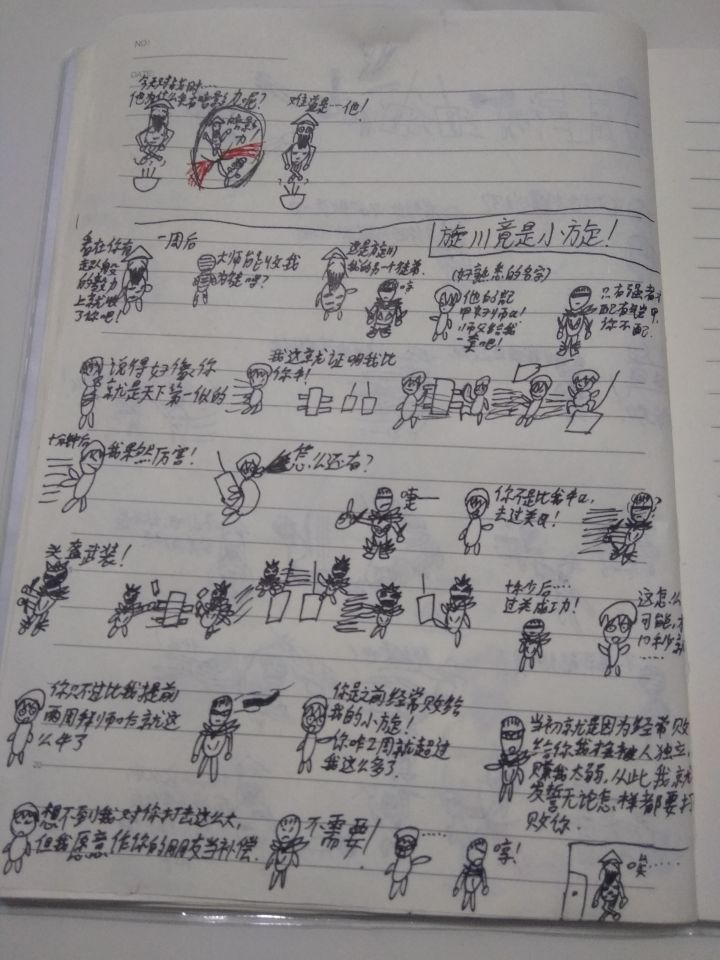 NO:
DATE
今天对战时……
他为什么会有暗影力呢?
暗影
力
难道是—他!
旋川竟是小方旋!
看在你有
这般
的毅力
上就收
了你吧!
一周后
大师能收我
为徒吗?
这是旋川
我的另一个徒弟.
哼
(好熟悉的名字)
他的盔
甲好帅a!
师父给我
一套吧!
只有强者才
配有铠甲
你不配.
说得好像你
就是天下第一似的
我这就证明我比
你牛!
十分钟后
我果然厉害!
怎么还有?
唉—
你不是比我牛a,
去过关a!
?
头盔武装!
十秒少后……
过关成功!
这怎么
可能,才
几秒
……
你只不过比我提前
两周拜师咋就这
么牛了
你是之前经常败给
我的小旋!
你咋2周就超过
我这么多了.
当初就是因为经常败
给你我才被人独立,
嫌我太弱,从此我就
发誓无论怎样都要打
败你.
想不到我对你打击这么大,
但我愿意作你的朋友当补偿.
不需要!
……
哼!
唉……